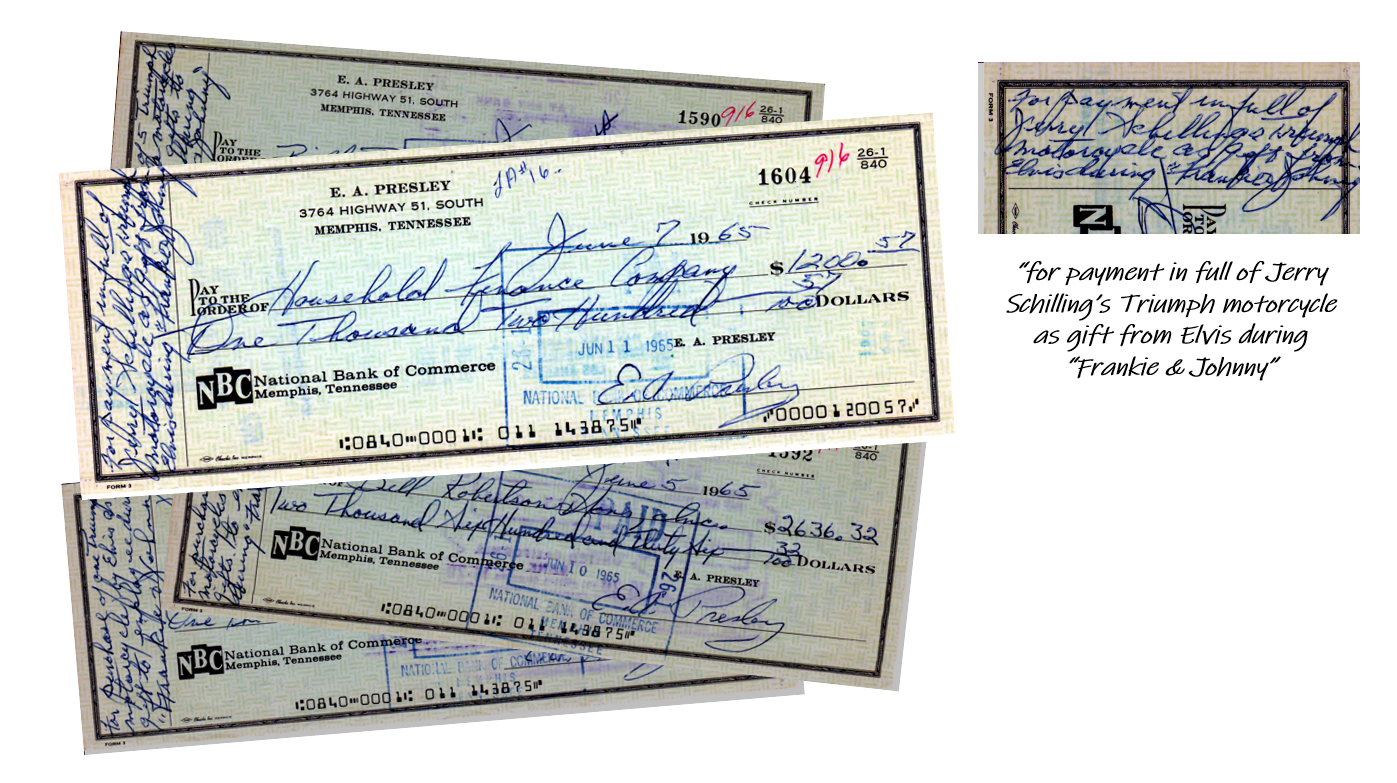 E. A. PRESLEY
3764 HIGHWAY 51, SOUTH
MEMPHIS, TENNESSEE
1590 916 26-1
840
PAY
TO THE
ORDER
Triumph
motorcycles
gifts to
during
Johnny"
E. A. PRESLEY
3764 HIGHWAY 51, SOUTH
MEMPHIS, TENNESSEE
1604 916 26-1
840
CHECK NUMBER
June 7 1965
PAY
TO THE
ORDER OF Household Finance Company $1200.57
One Thousand Two Hundred 57
100 DOLLARS
JUN 11 1965
E. A. PRESLEY
NBC National Bank of Commerce
Memphis, Tennessee
E. A. Presley
NATIONAL BANK OF COMMERCE
MEMPHIS
TENNESSEE
⑆0840⑉0001⑆ 011 143875⑈ ⑈0000120057⑈
FORM 3
for payment in full of
Jerry Schillings triumph
motorcycle as gift from
Elvis during "Frankie & Johnny
1592
26-1
840
CHECK NUMBER
June 5 1965
Bill Robertson & Sons, Inc. $2636.32
Two Thousand Six Hundred and Thirty Six 32
100 DOLLARS
PAID
JUN 10 1965
E. A. PRESLEY
NBC National Bank of Commerce
Memphis, Tennessee
E. A. Presley
NATIONAL BANK OF COMMERCE
MEMPHIS
TENNESSEE
⑆0840⑉0001⑆ 011 143875⑈
FORM 3
for purchase
motorcycles
gifts to
during
NBC National Bank of Commerce
Memphis, Tennessee
NATIONAL BANK OF COMMERCE
MEMPHIS
⑆0840⑉0001⑆ 011 143875⑈
FORM 3
for purchase of one Triumph
motorcycle by Elvis as
gift to employee during
"Frankie & Johnny
FORM 3
for payment in full of
Jerry Schillings triumph
motorcycle as gift from
Elvis during "Frankie & Johnny
PAY
TO THE
"for payment in full of Jerry
Schilling's Triumph motorcycle
as gift from Elvis during
"Frankie & Johnny"